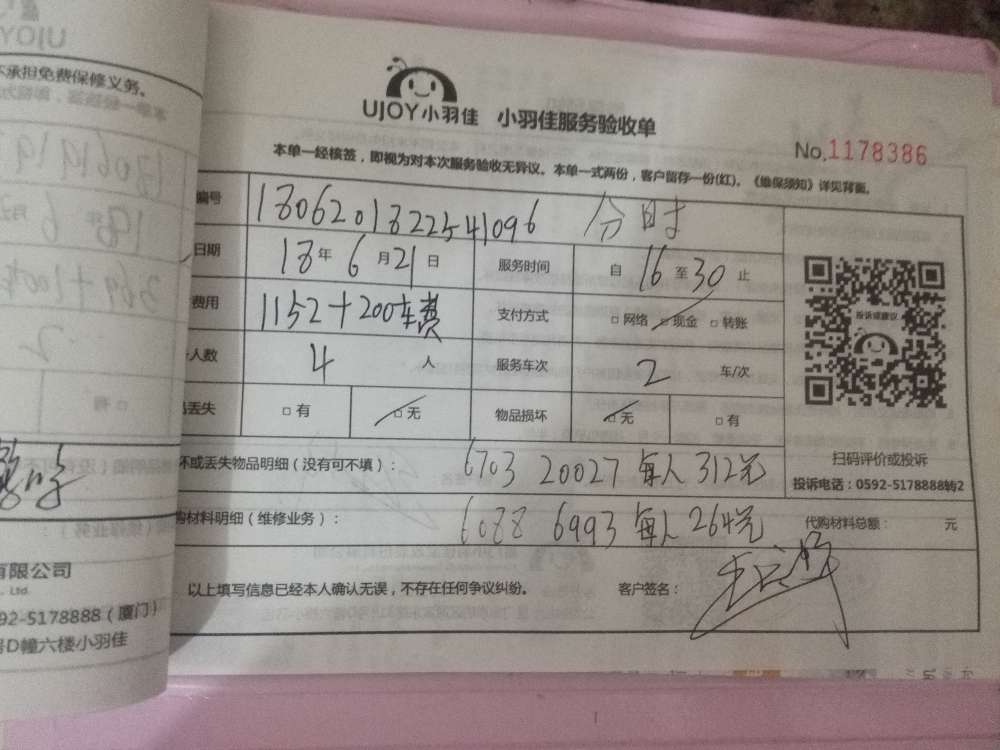 UJOY
不承担免费保修义务。
UJOY小羽佳 小羽佳服务验收单
No.1178386
本单一经核签，即视为对本次服务验收无异议。本单一式两份，客户留存一份(红)。《维保须知》详见背面。
编号 1806201822541096 分时
日期 18年6月21日 服务时间 自16至30止
费用 1152+200车费 支付方式 □网络 □现金 □转账
人数 4人 服务车次 2 车/次
丢失 □有 □无 物品损坏 □无 □有
投诉或建议
坏或丢失物品明细（没有可不填）： 6703 20027 每人312元
扫码评价或投诉
投诉电话：0592-5178888转2
购材料明细（维修业务）： 6088 6993 每人264元 代购材料总额： 元
以上填写信息已经本人确认无误，不存在任何争议纠纷。 客户签名：
有限公司
Ltd.
92-5178888（厦门）
号D幢六楼小羽佳